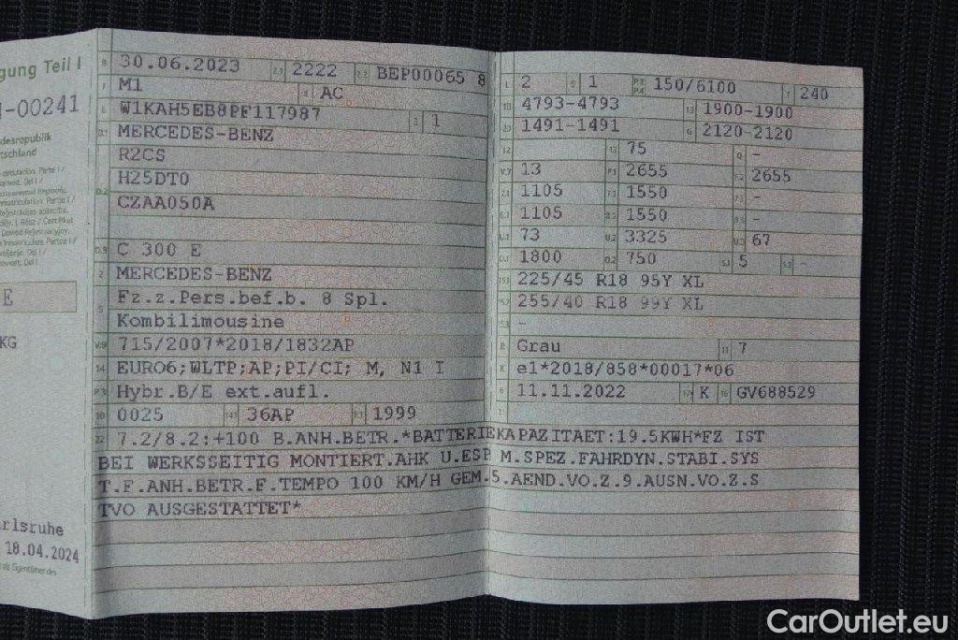 gung Teil I
-00241
desrepublik
tschland
E
KG
rlsruhe
18.04.2024
B 30.06.2023 2.1 2222 2.2 BEP00065 8
J M1 4 AC
E W1KAH5EB8PF117987 3 1
D.1 MERCEDES-BENZ
R2CS
D.2 H25DT0
CZAA050A
D.3 C 300 E
2 MERCEDES-BENZ
5 Fz.z.Pers.bef.b. 8 Spl.
Kombilimousine
V.9 715/2007*2018/1832AP
14 EURO6;WLTP;AP;PI/CI; M, N1 I
P.3 Hybr.B/E ext.aufl.
10 0025 14.1 36AP P.1 1999
L 2 9 1 P.2 P.4 150/6100 T 240
18 4793-4793 19 1900-1900
20 1491-1491 G 2120-2120
12 - 13 75 Q -
V.7 13 F.1 2655 F.2 2655
7.1 1105 7.2 1550 7.3 -
8.1 1105 8.2 1550 8.3 -
U.1 73 U.2 3325 U.3 67
O.1 1800 O.2 750 S.1 5 S.2 -
15.1 225/45 R18 95Y XL
15.2 255/40 R18 99Y XL
15.3 -
R Grau 11 7
K e1*2018/858*00017*06
6 11.11.2022 17 K 16 GV688529
22 7.2/8.2:+100 B.ANH.BETR.*BATTERIEKAPAZITAET:19.5KWH*FZ IST
BEI WERKSSEITIG MONTIERT.AHK U.ESP M.SPEZ.FAHRDYN.STABI.SYS
T.F.ANH.BETR.F.TEMPO 100 KM/H GEM.5.AEND.VO.Z.9.AUSN.VO.Z.S
TVO AUSGESTATTET*
CarOutlet.eu